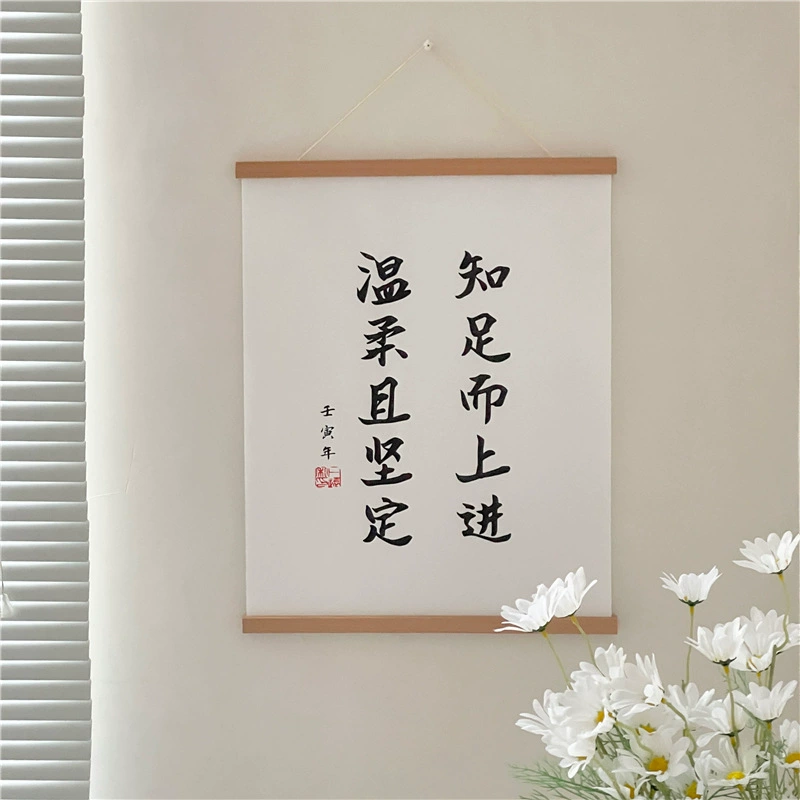 知足而上进
温柔且坚定
壬寅年